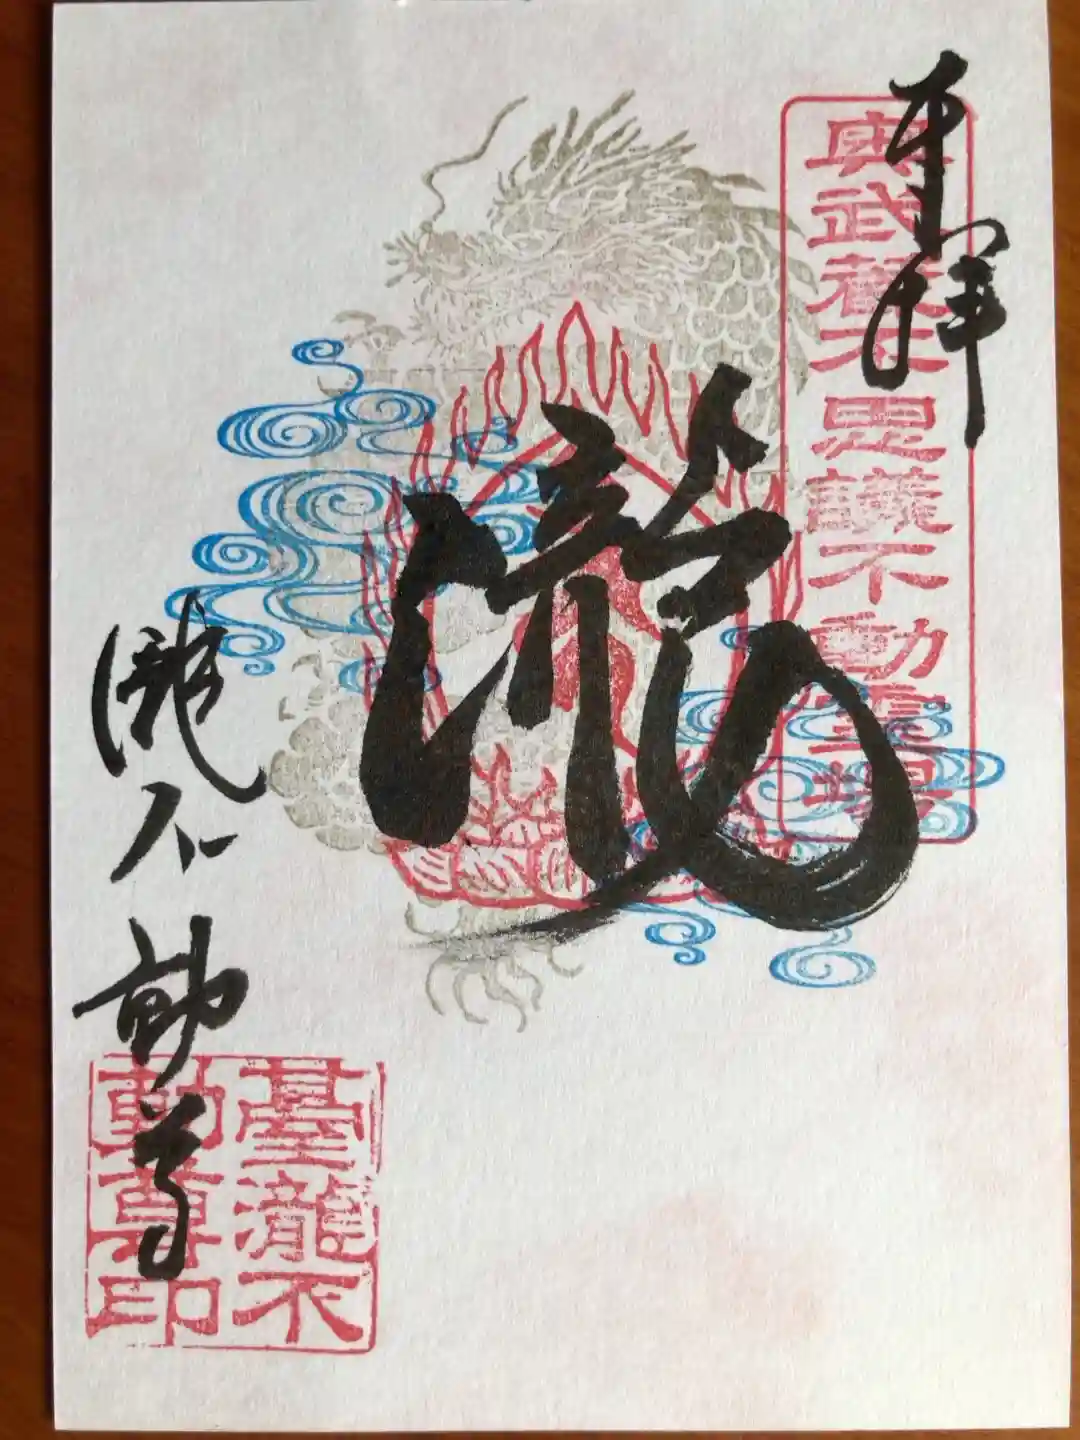 奉拝
奥武蔵不思議不動霊場
瀧
瀧不動尊
臺瀧不
動尊印